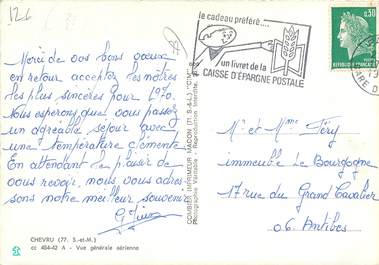 126
le cadeau préféré....
un livret de la
CAISSE D'ÉPARGNE POSTALE
0,30
REPUBLIQUE FRANÇAISE
Merci de vos bons voeux
en retour acceptez les nôtres
les plus sincères pour 1970.
Nous esperons que vous passez
un agréable séjour avec
une température clémente
En attendant le plaisir de
vous revoir, nous vous adres-
sons notre meilleur souvenir
COMBIER IMPRIMEUR MACON (71. S.-&-L.) "CIM"
Photographie Véritable - Reproduction Interdite
Mr et Mme Féry
immeuble Le Bourgogne
17 rue du Grand Cavalier
06. Antibes
CHEVRU (77. S.-et-M.)
cc 484-42 A - Vue générale aérienne